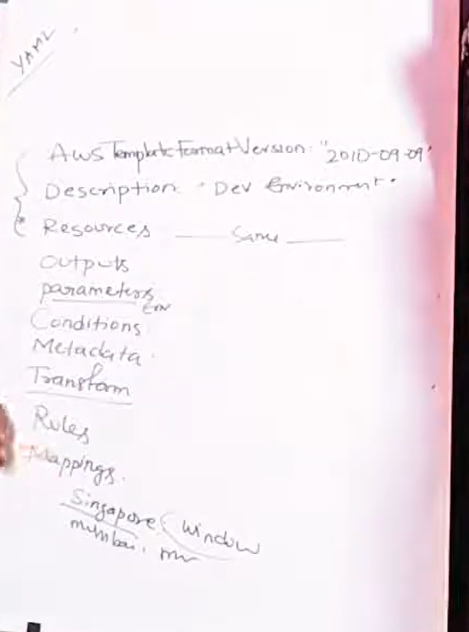 YAML
AWSTemplateFormatVersion: "2010-09-09"
Description: "Dev Environment"
Resources —— Same ——
Outputs
parameters
Env
Conditions
Metadata
Transform
Rules
Mappings.
Singapore: Window
mumbai,